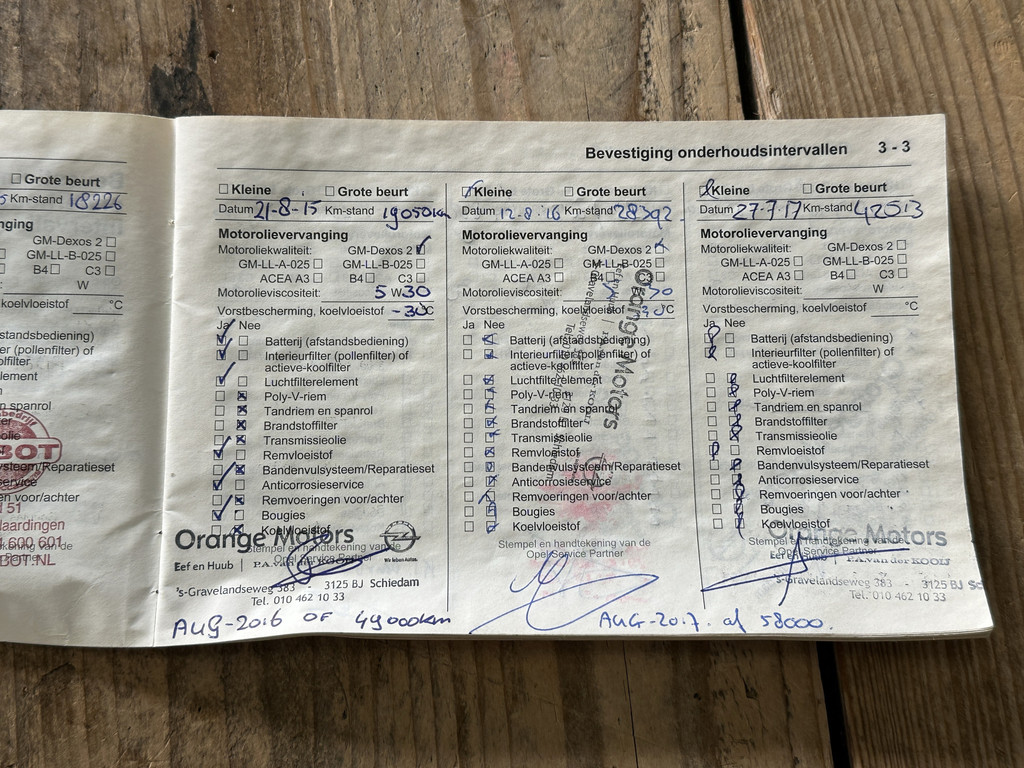 Bevestiging onderhoudsintervallen 3 - 3
Grote beurt
Km-stand 18226
GM-Dexos 2
B4 C3
W
koelvloeistof °C
BOT
600 601
BOT.NL
Kleine Grote beurt
Datum 21-8-15 Km-stand 19050km
Motorolievervanging
Motoroliekwaliteit: GM-Dexos 2
GM-LL-A-025 GM-LL-B-025
ACEA A3 B4 C3
Motorolieviscositeit: 5 W 30
Vorstbescherming, koelvloeistof -30 °C
Ja Nee
Batterij (afstandsbediening)
Interieurfilter (pollenfilter) of
actieve-koolfilter
Luchtfilterelement
Poly-V-riem
Tandriem en spanrol
Brandstoffilter
Transmissieolie
Remvloeistof
Bandenvulsysteem/Reparatieset
Anticorrosieservice
Remvoeringen voor/achter
Bougies
Koelvloeistof
Stempel en handtekening van de
Opel Service Partner
Orange Motors
Eef en Huub | P.A. van der KOOIJ
's-Gravelandseweg 383 - 3125 BJ Schiedam
Tel. 010 462 10 33
AUG-2016 OF 49000km
Kleine Grote beurt
Datum 12-8-16 Km-stand 28392
Motorolievervanging
Motoroliekwaliteit: GM-Dexos 2
GM-LL-A-025 GM-LL-B-025
ACEA A3 B4 C3
Motorolieviscositeit: 30
Vorstbescherming, koelvloeistof 30 °C
Ja Nee
Batterij (afstandsbediening)
Interieurfilter (pollenfilter) of
actieve-koolfilter
Luchtfilterelement
Poly-V-riem
Tandriem en spanrol
Brandstoffilter
Transmissieolie
Remvloeistof
Bandenvulsysteem/Reparatieset
Anticorrosieservice
Remvoeringen voor/achter
Bougies
Koelvloeistof
Stempel en handtekening van de
Opel Service Partner
Orange Motors
AUG-2017. of 58000.
Kleine Grote beurt
Datum 27-7-17 Km-stand 42513
Motorolievervanging
Motoroliekwaliteit: GM-Dexos 2
GM-LL-A-025 GM-LL-B-025
ACEA A3 B4 C3
Motorolieviscositeit: W
Vorstbescherming, koelvloeistof °C
Ja Nee
Batterij (afstandsbediening)
Interieurfilter (pollenfilter) of
actieve-koolfilter
Luchtfilterelement
Poly-V-riem
Tandriem en spanrol
Brandstoffilter
Transmissieolie
Remvloeistof
Bandenvulsysteem/Reparatieset
Anticorrosieservice
Remvoeringen voor/achter
Bougies
Koelvloeistof
Stempel en handtekening van de
Opel Service Partner
Orange Motors
Eef en Huub | P.A. van der KOOIJ
's-Gravelandseweg 383 - 3125 BJ
Tel. 010 462 10 33